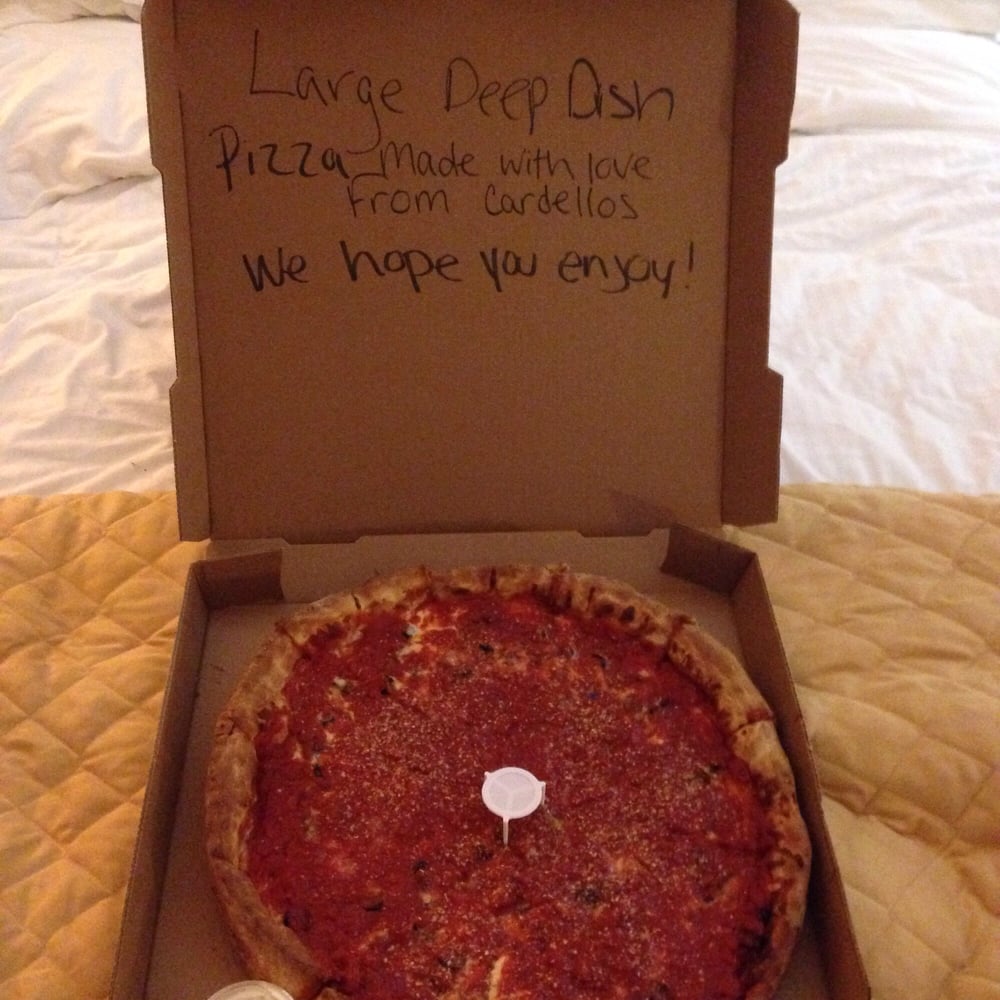 Large Deep Dish
Pizza Made with love
From Cardellos
We hope you enjoy!